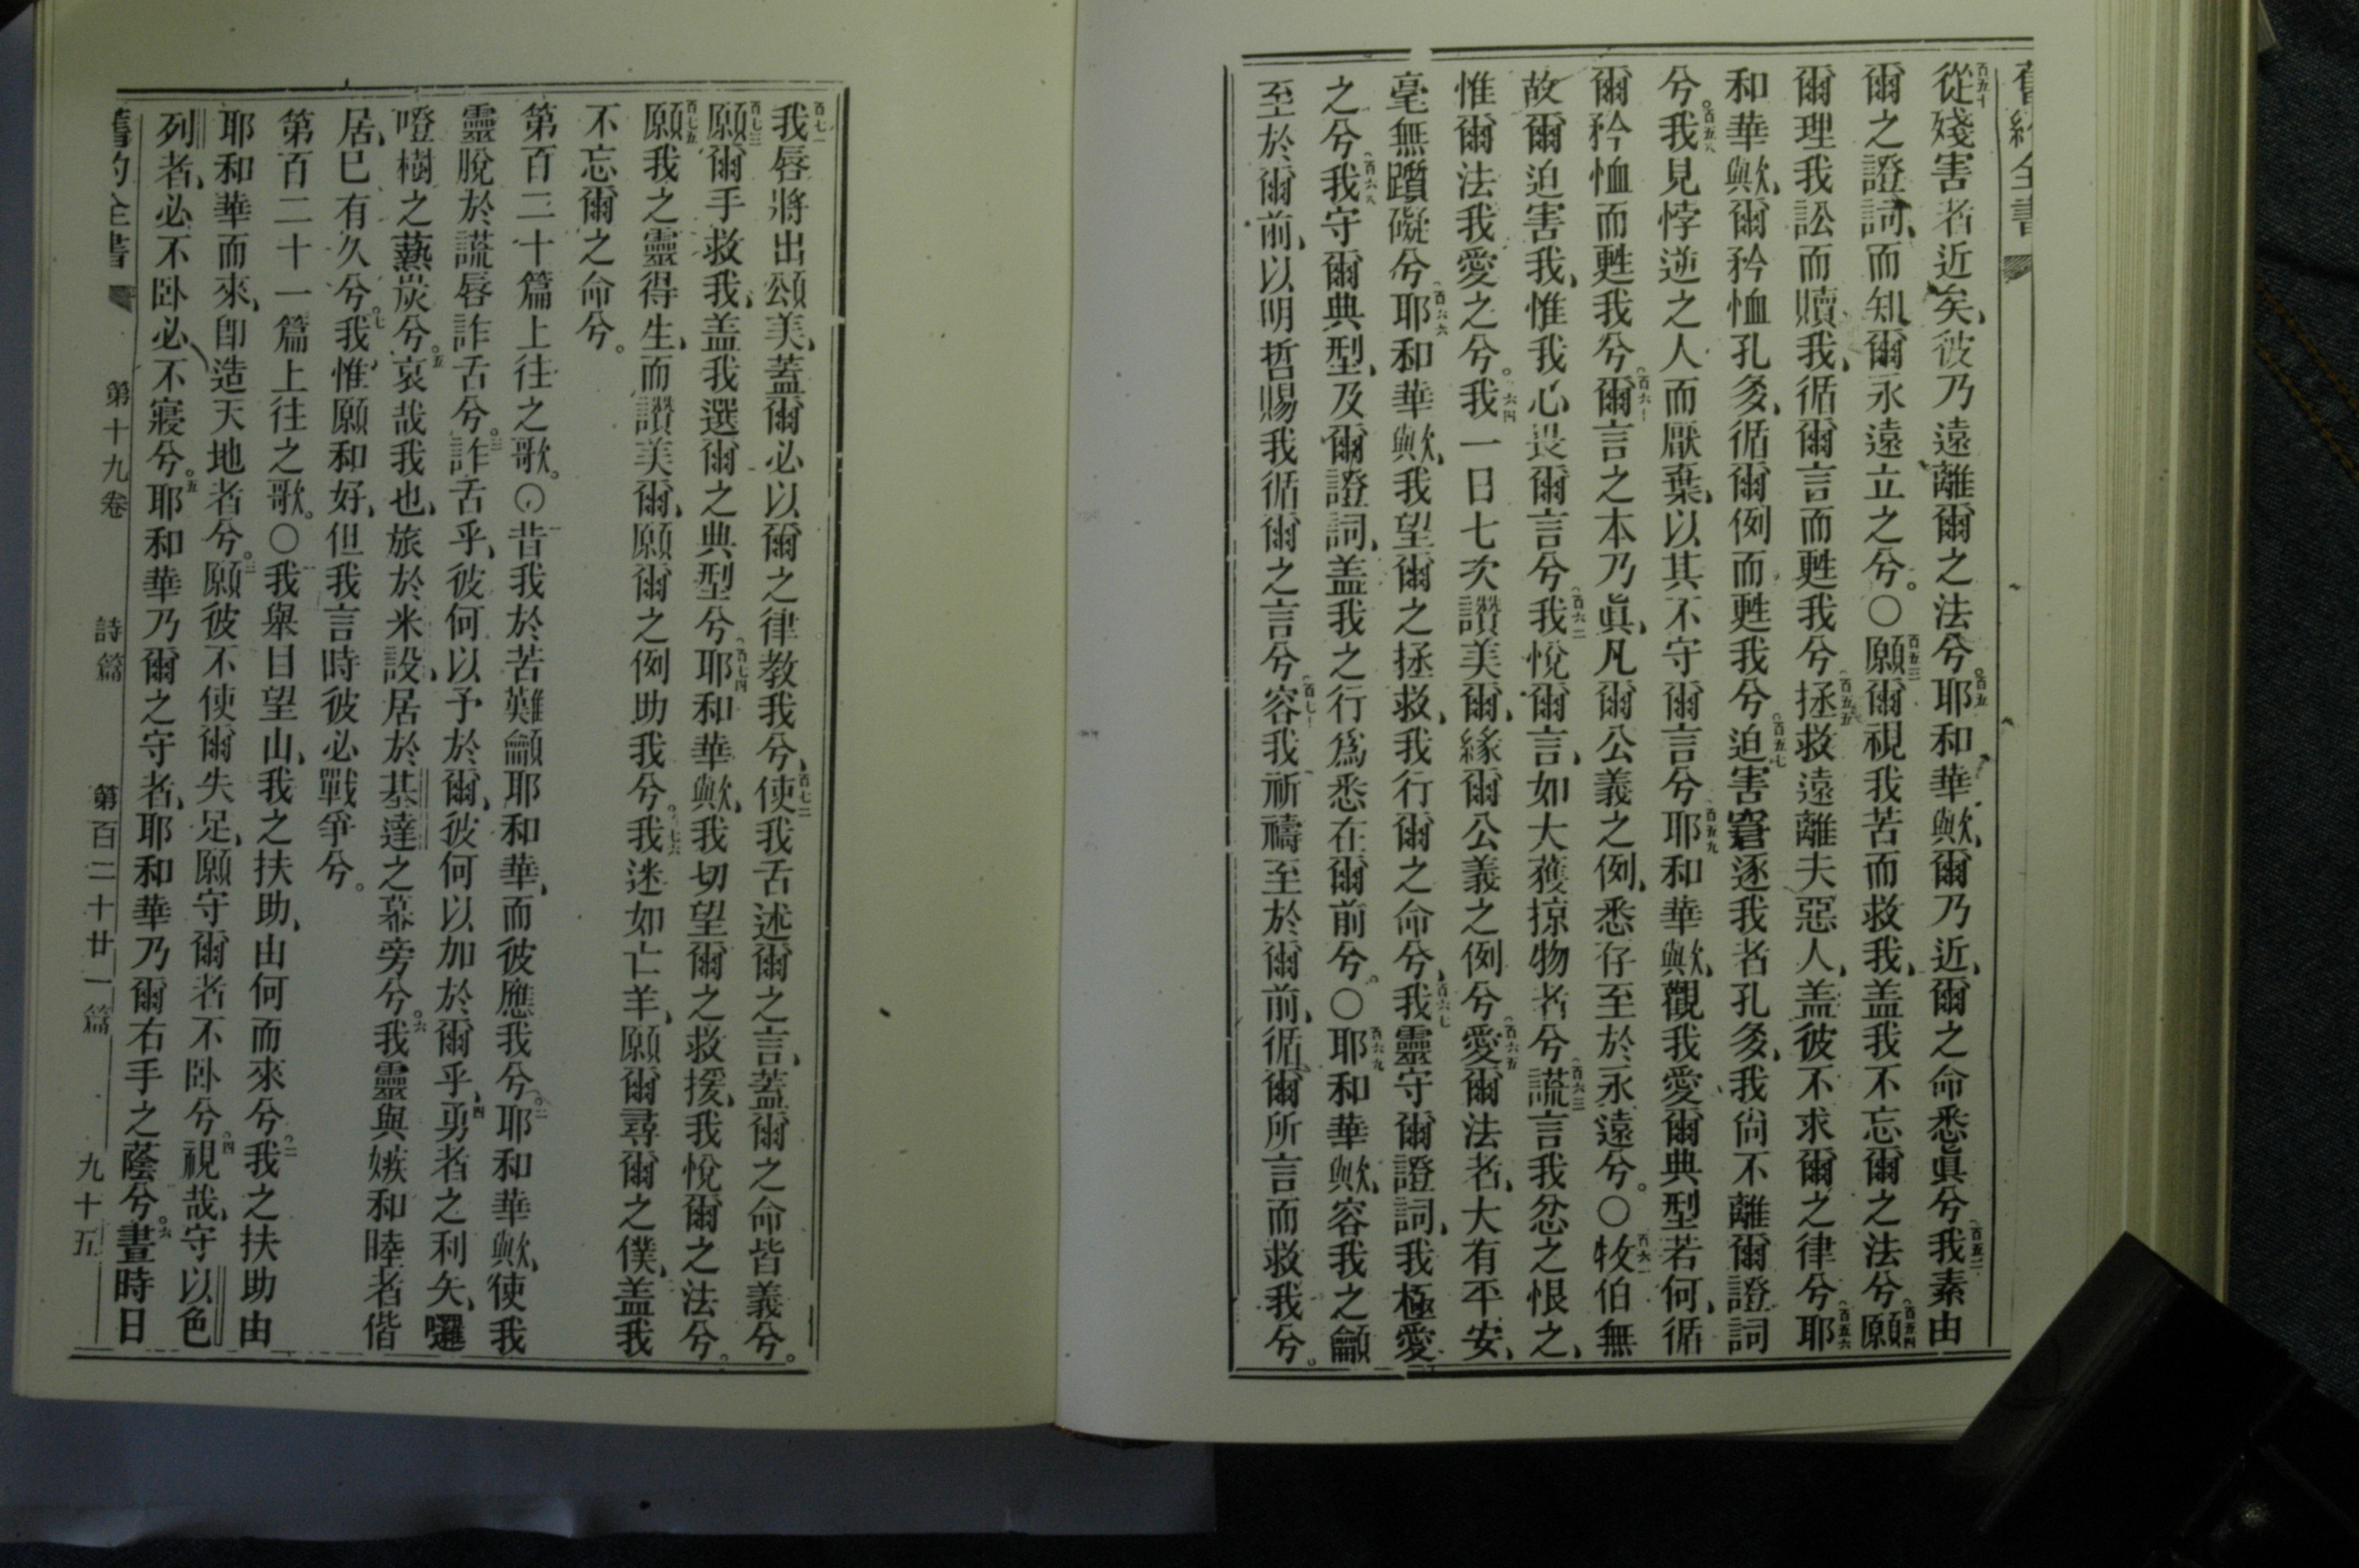 舊約全書
從殘害者近矣、彼乃遠離爾之法兮。耶和華歟、爾乃近、爾之命悉眞兮、我素由
爾之證詞、而知爾永遠立之兮。〇願爾視我苦而救我、盖我不忘爾之法兮、願
爾理我訟而贖我、循爾言而甦我兮、拯救遠離夫惡人、盖彼不求爾之律兮、耶
和華歟、爾矜恤孔多、循爾例而甦我兮、迫害窘逐我者孔多、我尙不離爾證詞
兮。我見悖逆之人而厭棄、以其不守爾言兮、耶和華歟、觀我愛爾典型若何、循
爾矜恤而甦我兮、爾言之本乃眞、凡爾公義之例、悉存至於永遠兮。〇牧伯無
故爾迫害我、惟我心畏爾言兮、我悅爾言、如大獲掠物者兮、謊言我忿之恨之、
惟爾法我愛之兮。我一日七次讃美爾、緣爾公義之例兮、愛爾法者、大有平安、
毫無躓礙兮、耶和華歟、我望爾之拯救、我行爾之命兮、我靈守爾證詞、我極愛
之兮、我守爾典型、及爾證詞、盖我之行爲悉在爾前兮。〇耶和華歟、容我之籲
至於爾前、以明哲賜我循爾之言兮、容我祈禱至於爾前、循爾所言而救我兮。
我唇將出頌美、蓋爾必以爾之律教我兮、使我舌述爾之言、蓋爾之命皆義兮。
願爾手救我、盖我選爾之典型兮、耶和華歟、我切望爾之救援、我悅爾之法兮。
願我之靈得生、而讃美爾、願爾之例助我兮。我迷如亡羊、願爾尋爾之僕、盖我
不忘爾之命兮。
第百二十篇上往之歌。〇昔我於苦難籲耶和華、而彼應我兮。耶和華歟、使我
靈脫於謊唇詐舌兮。詐舌乎、彼何以予於爾、彼何以加於爾乎、勇者之利矢、囉
噔樹之爇炭兮。哀哉我也、旅於米設、居於基達之幕旁兮。我靈與嫉和睦者偕
居、已有久兮。我惟願和好、但我言時彼必戰爭兮。
第百二十一篇上往之歌。〇我舉目望山、我之扶助、由何而來兮。我之扶助由
耶和華而來、卽造天地者兮。願彼不使爾失足、願守爾者不卧兮。視哉、守以色
列者、必不卧必不寢兮。耶和華乃爾之守者、耶和華乃爾右手之蔭兮。晝時日
舊約全書 第十九卷 詩篇 第百二十廿一篇 九十五